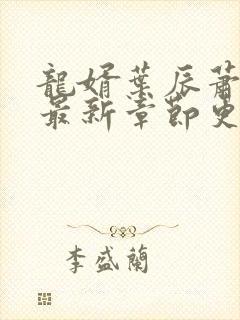 龍婿葉辰蕭
最新章節更
李盛蘭